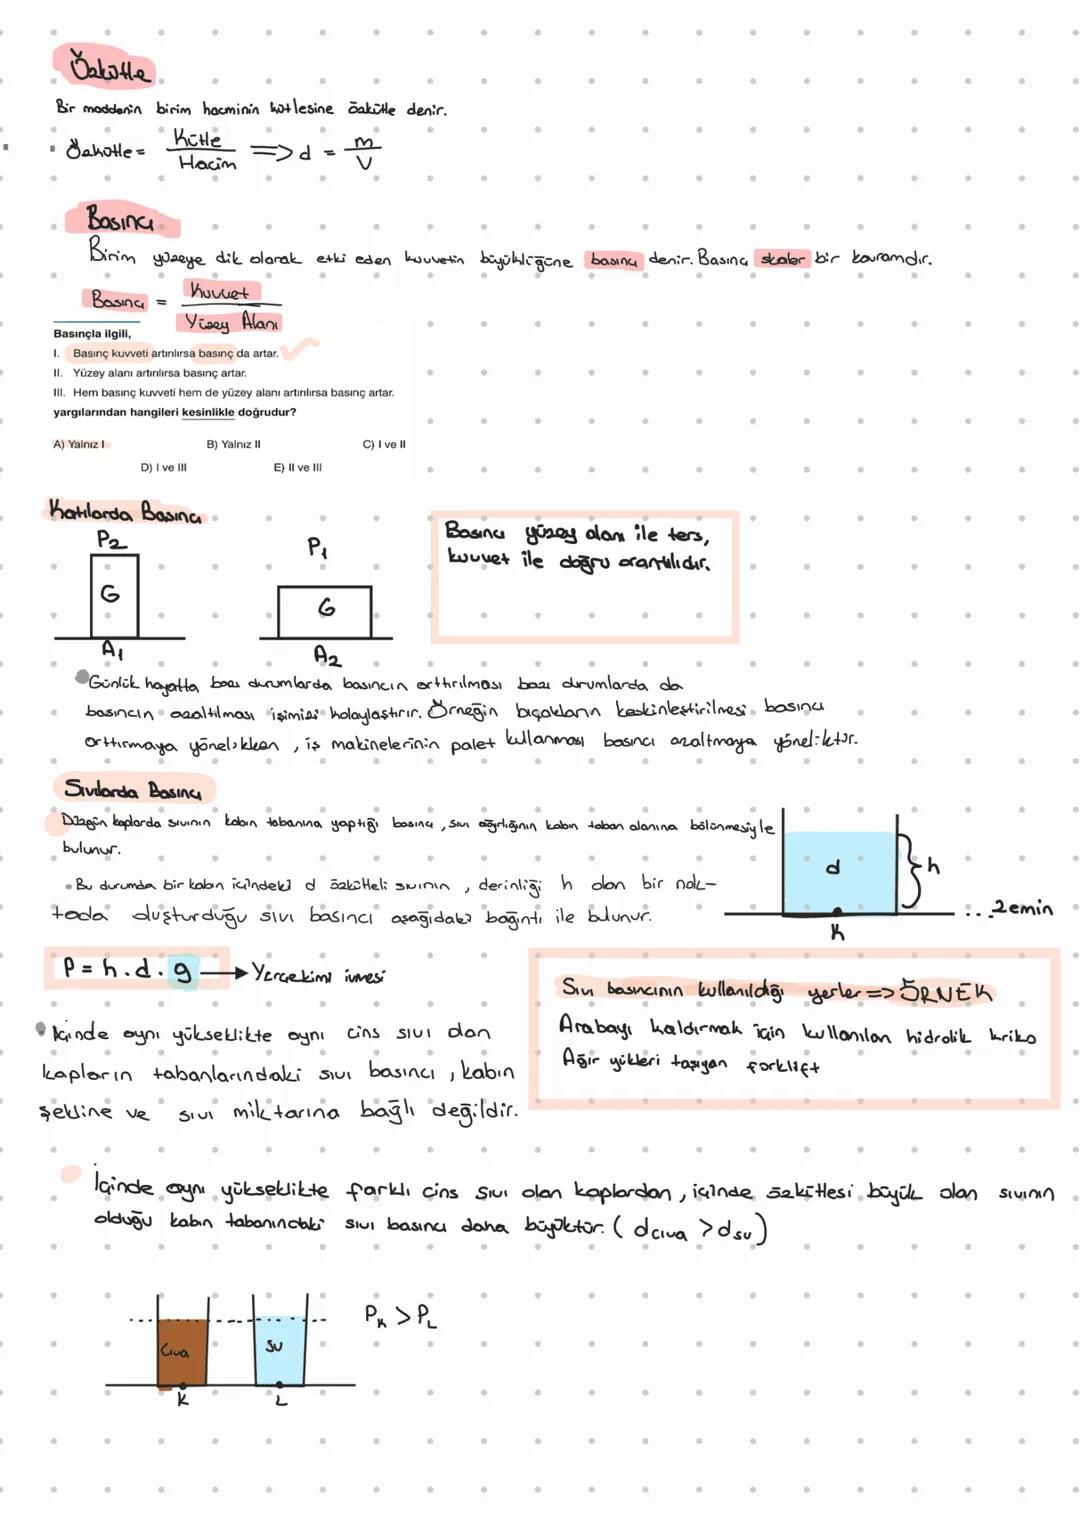 Özkütle
Bir maddenin birim hacminin kütlesine özkütle denir.
Özkütle = Kütle / Hacim => d = m / V
Basınç
Birim yüzeye dik olarak etki eden kuvvetin büyüklüğüne basınç denir. Basınç skaler bir kavramdır.
Basınç = Kuvvet / Yüzey Alanı
Basınçla ilgili,
I. Basınç kuvveti artırılırsa basınç da artar.
II. Yüzey alanı artırılırsa basınç artar.
III. Hem basınç kuvveti hem de yüzey alanı artırılırsa basınç artar.
yargılarından hangileri kesinlikle doğrudur?
A) Yalnız I B) Yalnız II C) I ve II
D) I ve III E) II ve III
Katılarda Basınç
P2 P1
G G
A1 A2
Basınç yüzey alanı ile ters,
kuvvet ile doğru orantılıdır.
Günlük hayatta bazı durumlarda basıncın arttırılması bazı durumlarda da
basıncın azaltılması işimizi kolaylaştırır. Örneğin bıçakların keskinleştirilmesi basıncı
arttırmaya yönelikken, iş makinelerinin palet kullanması basıncı azaltmaya yöneliktir.
Sıvılarda Basınç
Düzgün kaplarda sıvının kabın tabanına yaptığı basınç, sıvı ağırlığının kabın taban alanına bölünmesiyle
bulunur.
Bu durumda bir kabın içindeki d özkütleli sıvının, derinliği h olan bir nok-
tada oluşturduğu sıvı basıncı aşağıdaki bağıntı ile bulunur.
d h
K
...zemin
P = h.d.g → Yerçekimi ivmesi
Sıvı basıncının kullanıldığı yerler => ÖRNEK
Arabayı kaldırmak için kullanılan hidrolik kriko
Ağır yükleri taşıyan forklift
İçinde aynı yükseklikte aynı cins sıvı olan
kapların tabanlarındaki sıvı basıncı, kabın
şekline ve sıvı miktarına bağlı değildir.
İçinde aynı yükseklikte farklı cins sıvı olan kaplardan, içinde özkütlesi büyük olan sıvının
olduğu kabın tabanındaki sıvı basıncı daha büyüktür. (dcıva > dsu)
PK > PL
Cıva SU
K L